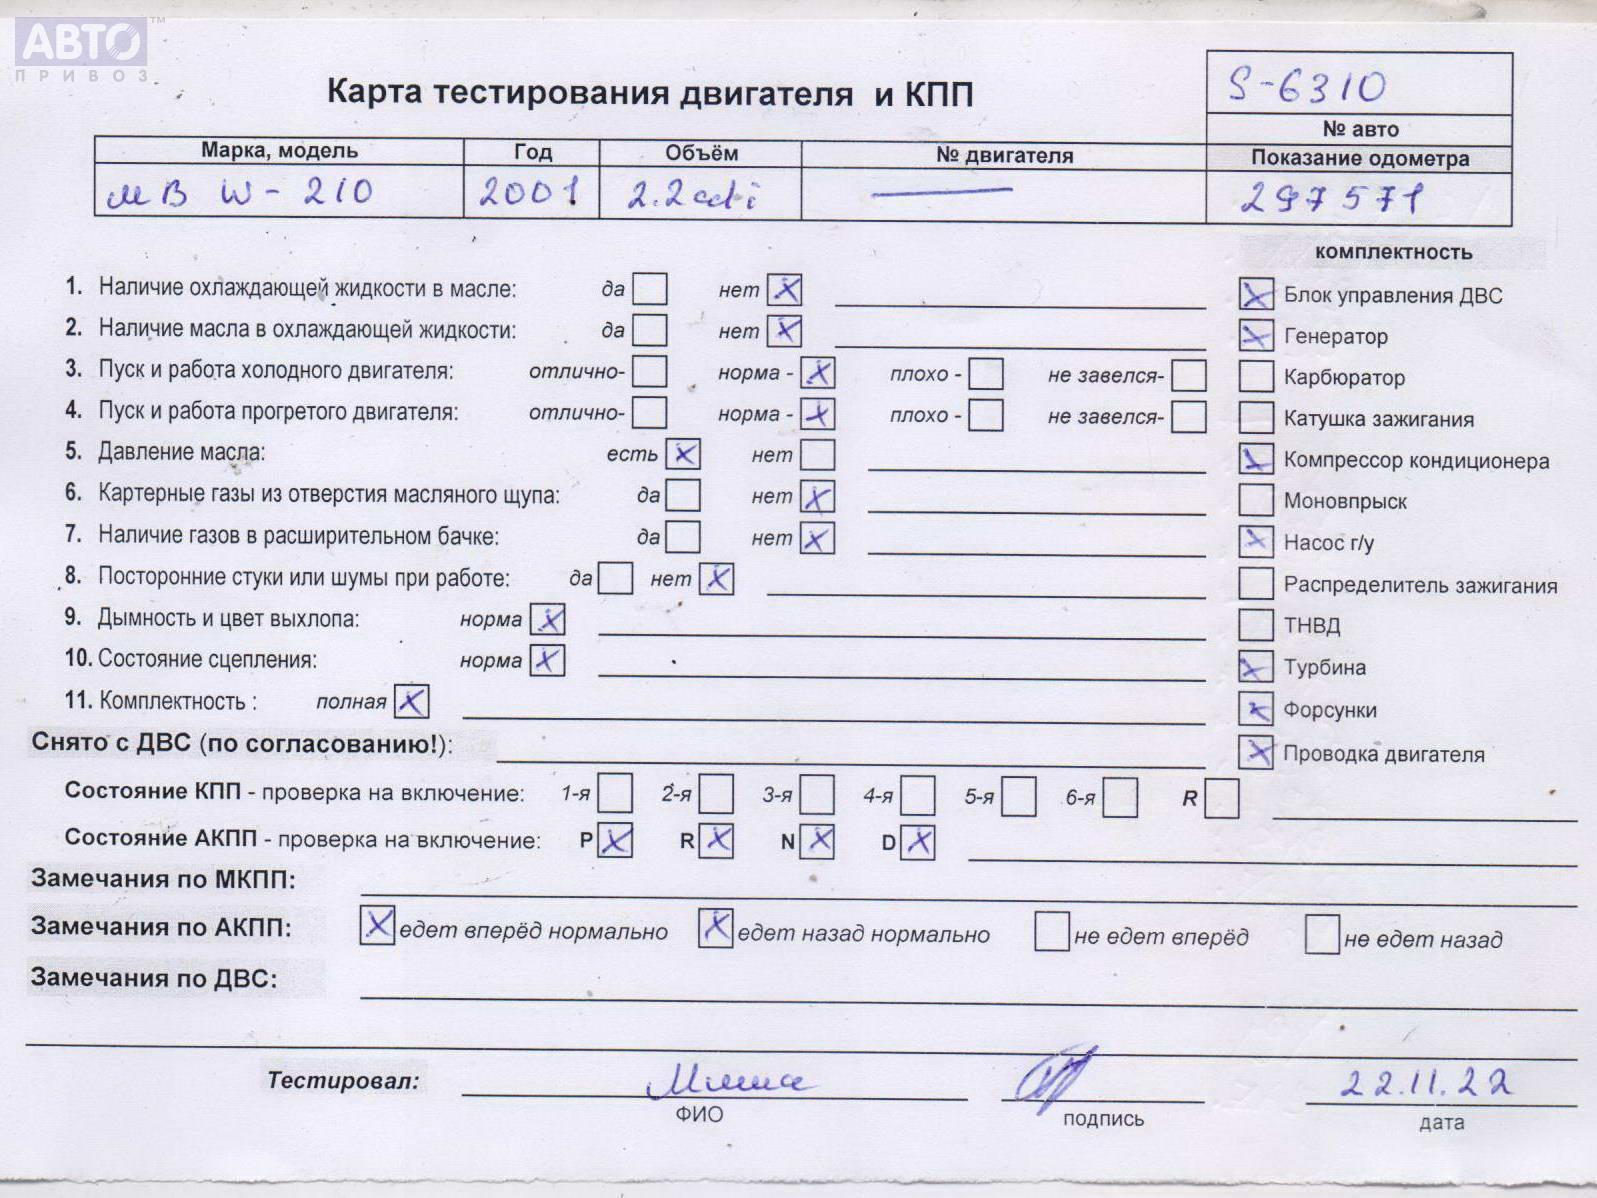 АВТО™
ПРИВОЗ
Карта тестирования двигателя и КПП
S-6310
№ авто
Марка, модель Год Объём № двигателя Показание одометра
МВ W-210 2001 2.2cdi — 297571
комплектность
1. Наличие охлаждающей жидкости в масле: да нет X Блок управления ДВС X
2. Наличие масла в охлаждающей жидкости: да нет X Генератор X
3. Пуск и работа холодного двигателя: отлично- норма - X плохо - не завелся- Карбюратор
4. Пуск и работа прогретого двигателя: отлично- норма - X плохо - не завелся- Катушка зажигания
5. Давление масла: есть X нет X Компрессор кондиционера
6. Картерные газы из отверстия масляного щупа: да нет X Моновпрыск
7. Наличие газов в расширительном бачке: да нет X X Насос г/у
8. Посторонние стуки или шумы при работе: да нет X Распределитель зажигания
9. Дымность и цвет выхлопа: норма X ТНВД
10. Состояние сцепления: норма X X Турбина
11. Комплектность : полная X X Форсунки
Снято с ДВС (по согласованию!): X Проводка двигателя
Состояние КПП - проверка на включение: 1-я 2-я 3-я 4-я 5-я 6-я R
Состояние АКПП - проверка на включение: P X R X N X D X
Замечания по МКПП:
Замечания по АКПП: X едет вперёд нормально X едет назад нормально не едет вперёд не едет назад
Замечания по ДВС:
Тестировал: Миша 22.11.22
ФИО подпись дата